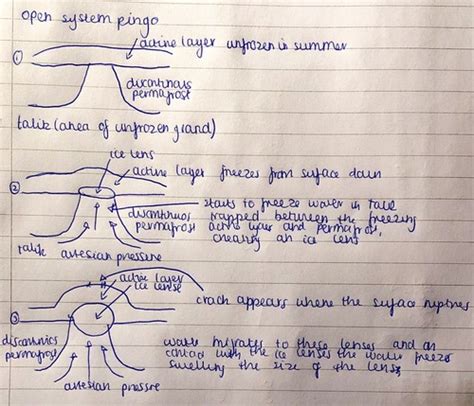 open system pingo
active layer unfrozen in summer
①
discontinuous
permafrost
talik (area of unfrozen ground)
ice lens
active layer freezes from surface down
②
starts to freeze water in talik
trapped between the freezing
active layer and permafrost,
creating an ice lens
discontinuous
permafrost
talik artesian pressure
active layer
ice lense
crack appears where the surface ruptures
③
discontinuous
permafrost
water migrates to these lenses and on
contact with the ice lenses the water freezes
swelling the size of the lens
artesian pressure